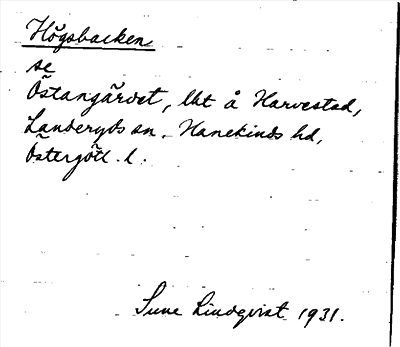 Högsbacken
se
Östangärdet, lht å Harvestad,
Landeryds sn. Hanekinds hd,
Östergötl. l.
Sune Lindqvist 1931.